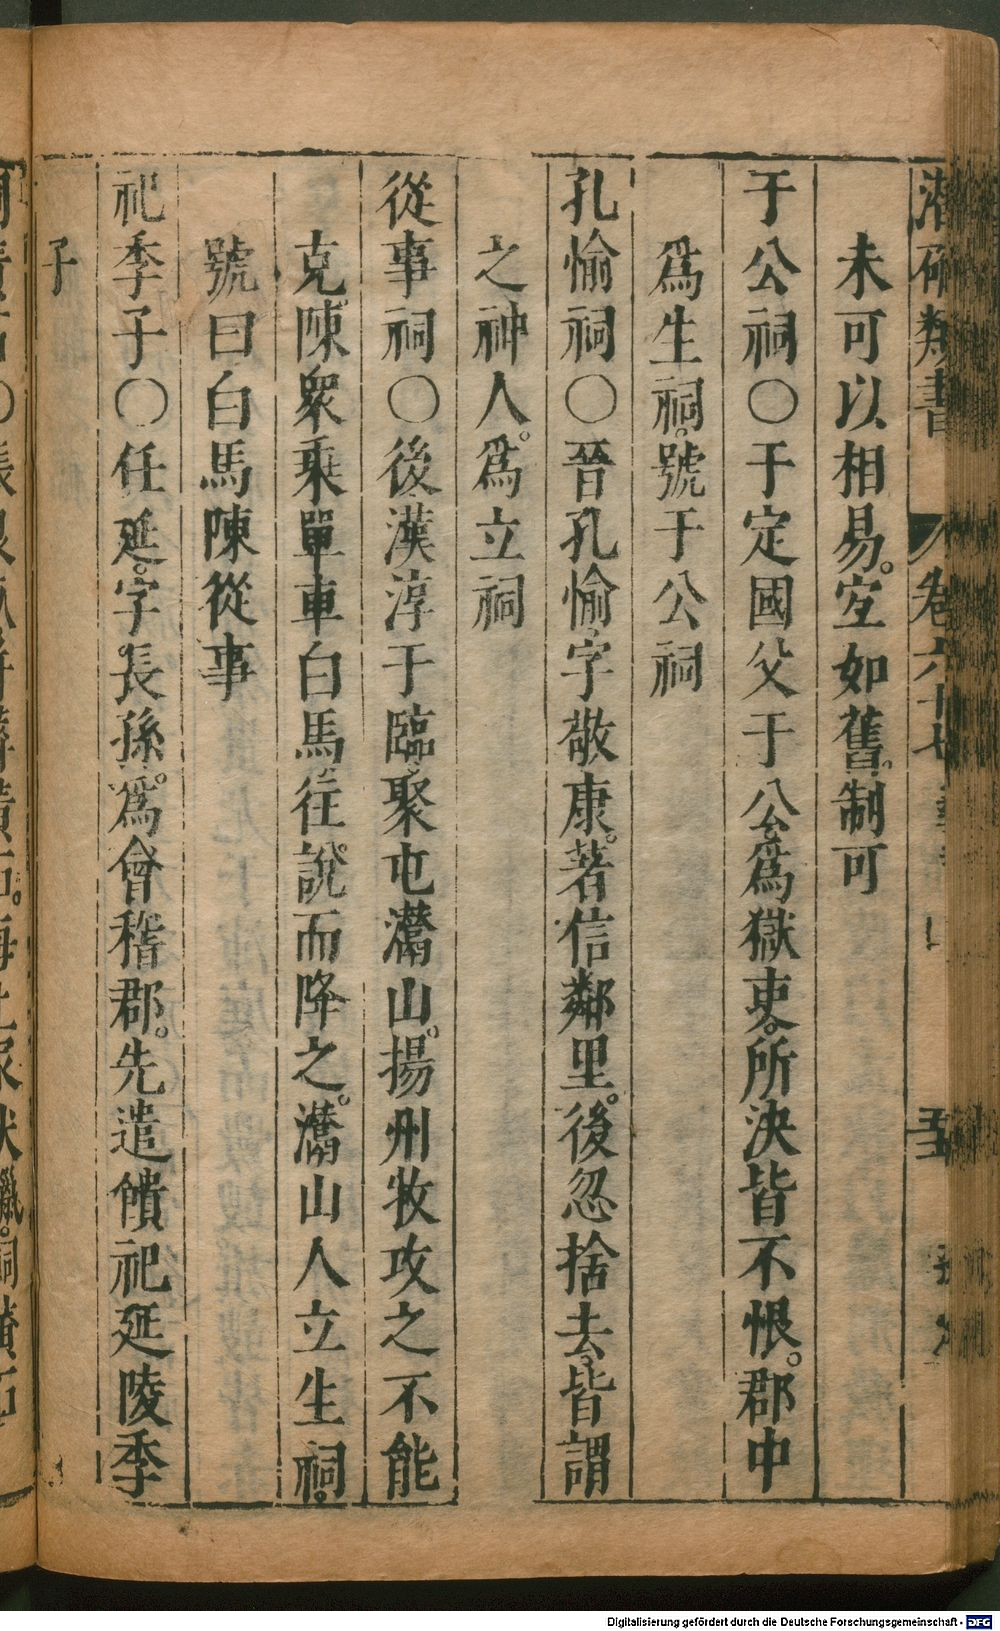 潛確類書 卷六十七
未可以相易。宐如舊。制可
于公祠○于定國父于公。爲獄吏。所決皆不恨。郡中
爲生祠。號于公祠
孔愉祠○晉孔愉。字敬康。著信鄰里。後忽捨去。皆謂
之神人。爲立祠
從事祠○後漢淳于臨。聚屯灊山。揚州牧攻之不能
克。陳衆乘單車白馬往。說而降之。灊山人立生祠。
號曰白馬陳從事
祀季子○任延。字長孫。爲會稽郡。先遣饋祀延陵季
子
Digitalisierung gefördert durch die Deutsche Forschungsgemeinschaft - DFG